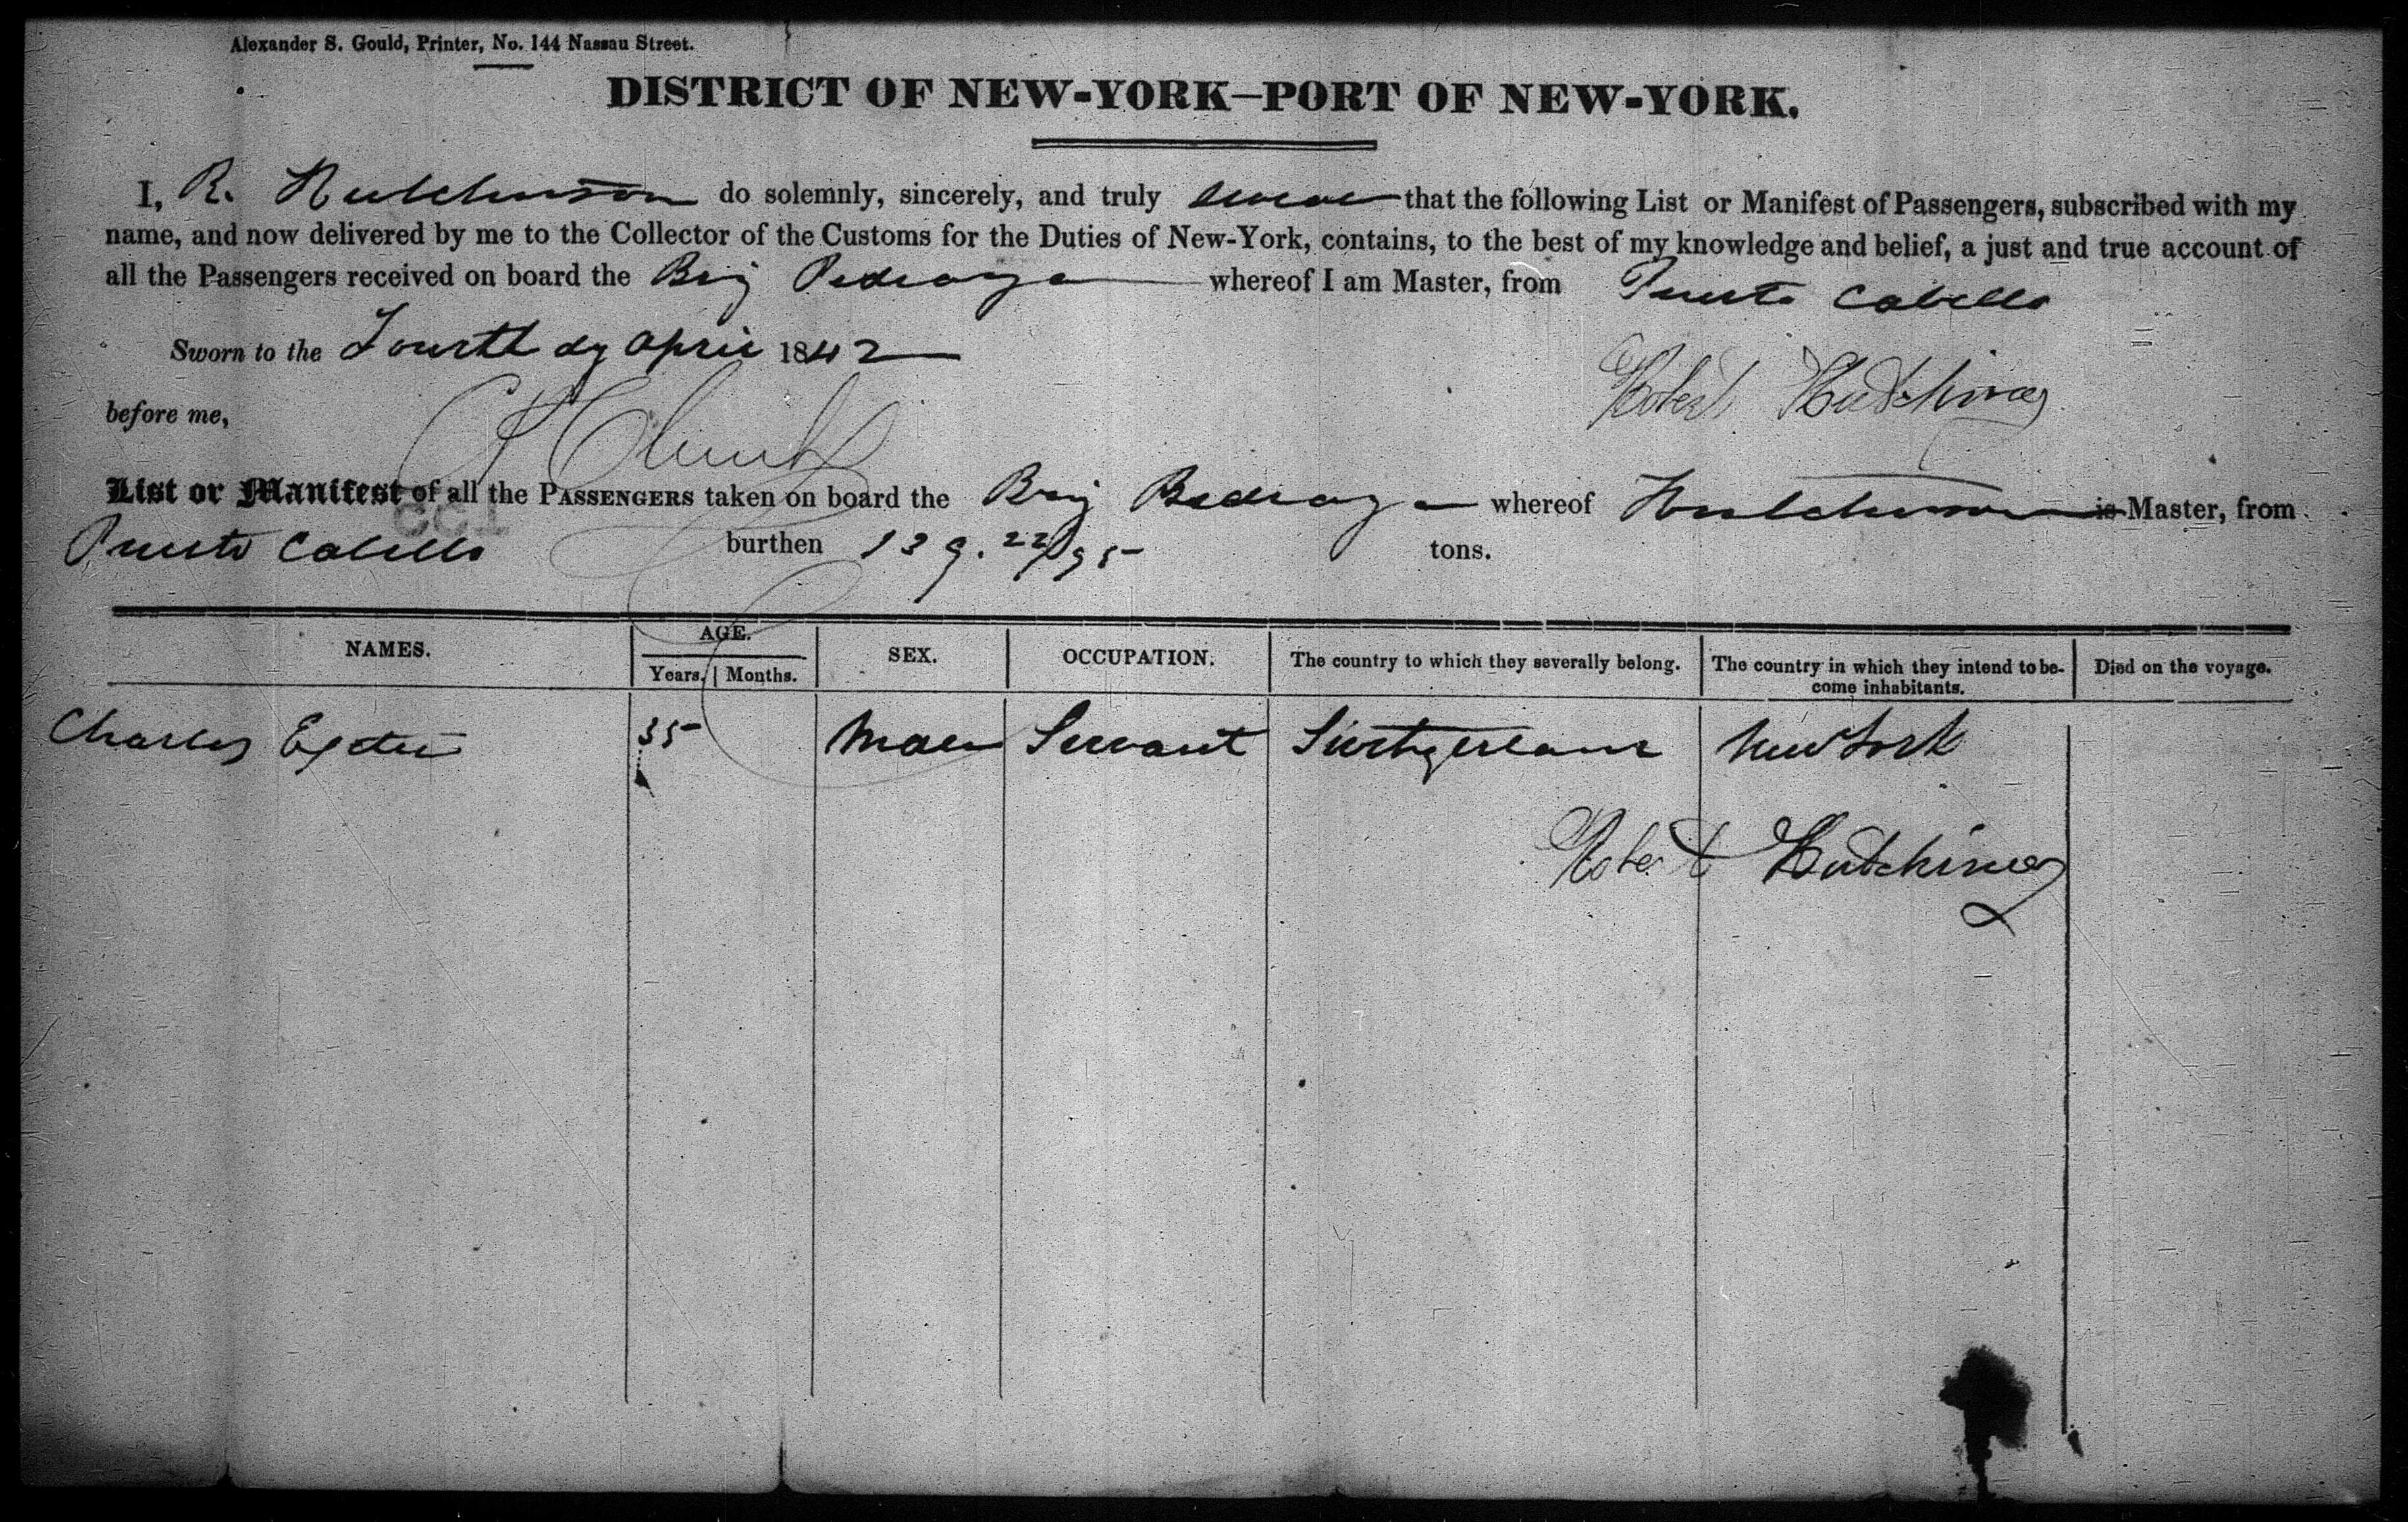 Alexander S. Gould, Printer, No. 144 Nassau Street.
DISTRICT OF NEW-YORK—PORT OF NEW-YORK.
I, R. Hutchinson do solemnly, sincerely, and truly swear that the following List or Manifest of Passengers, subscribed with my
name, and now delivered by me to the Collector of the Customs for the Duties of New-York, contains, to the best of my knowledge and belief, a just and true account of
all the Passengers received on board the Brig Pedraza whereof I am Master, from Puerto Cabello
Sworn to the Fourth dy April 1842
Robert Hutchinson
before me,
List or Manifest of all the PASSENGERS taken on board the Brig Pedraza whereof Hutchinson is Master, from
Puerto Cabello burthen 139. 22/95 tons.
NAMES. AGE. SEX. OCCUPATION. The country to which they severally belong. The country in which they intend to be- Died on the voyage.
Years. Months. come inhabitants.
Charles 35 Male Servant Switzerland New York
Robert Hutchinson